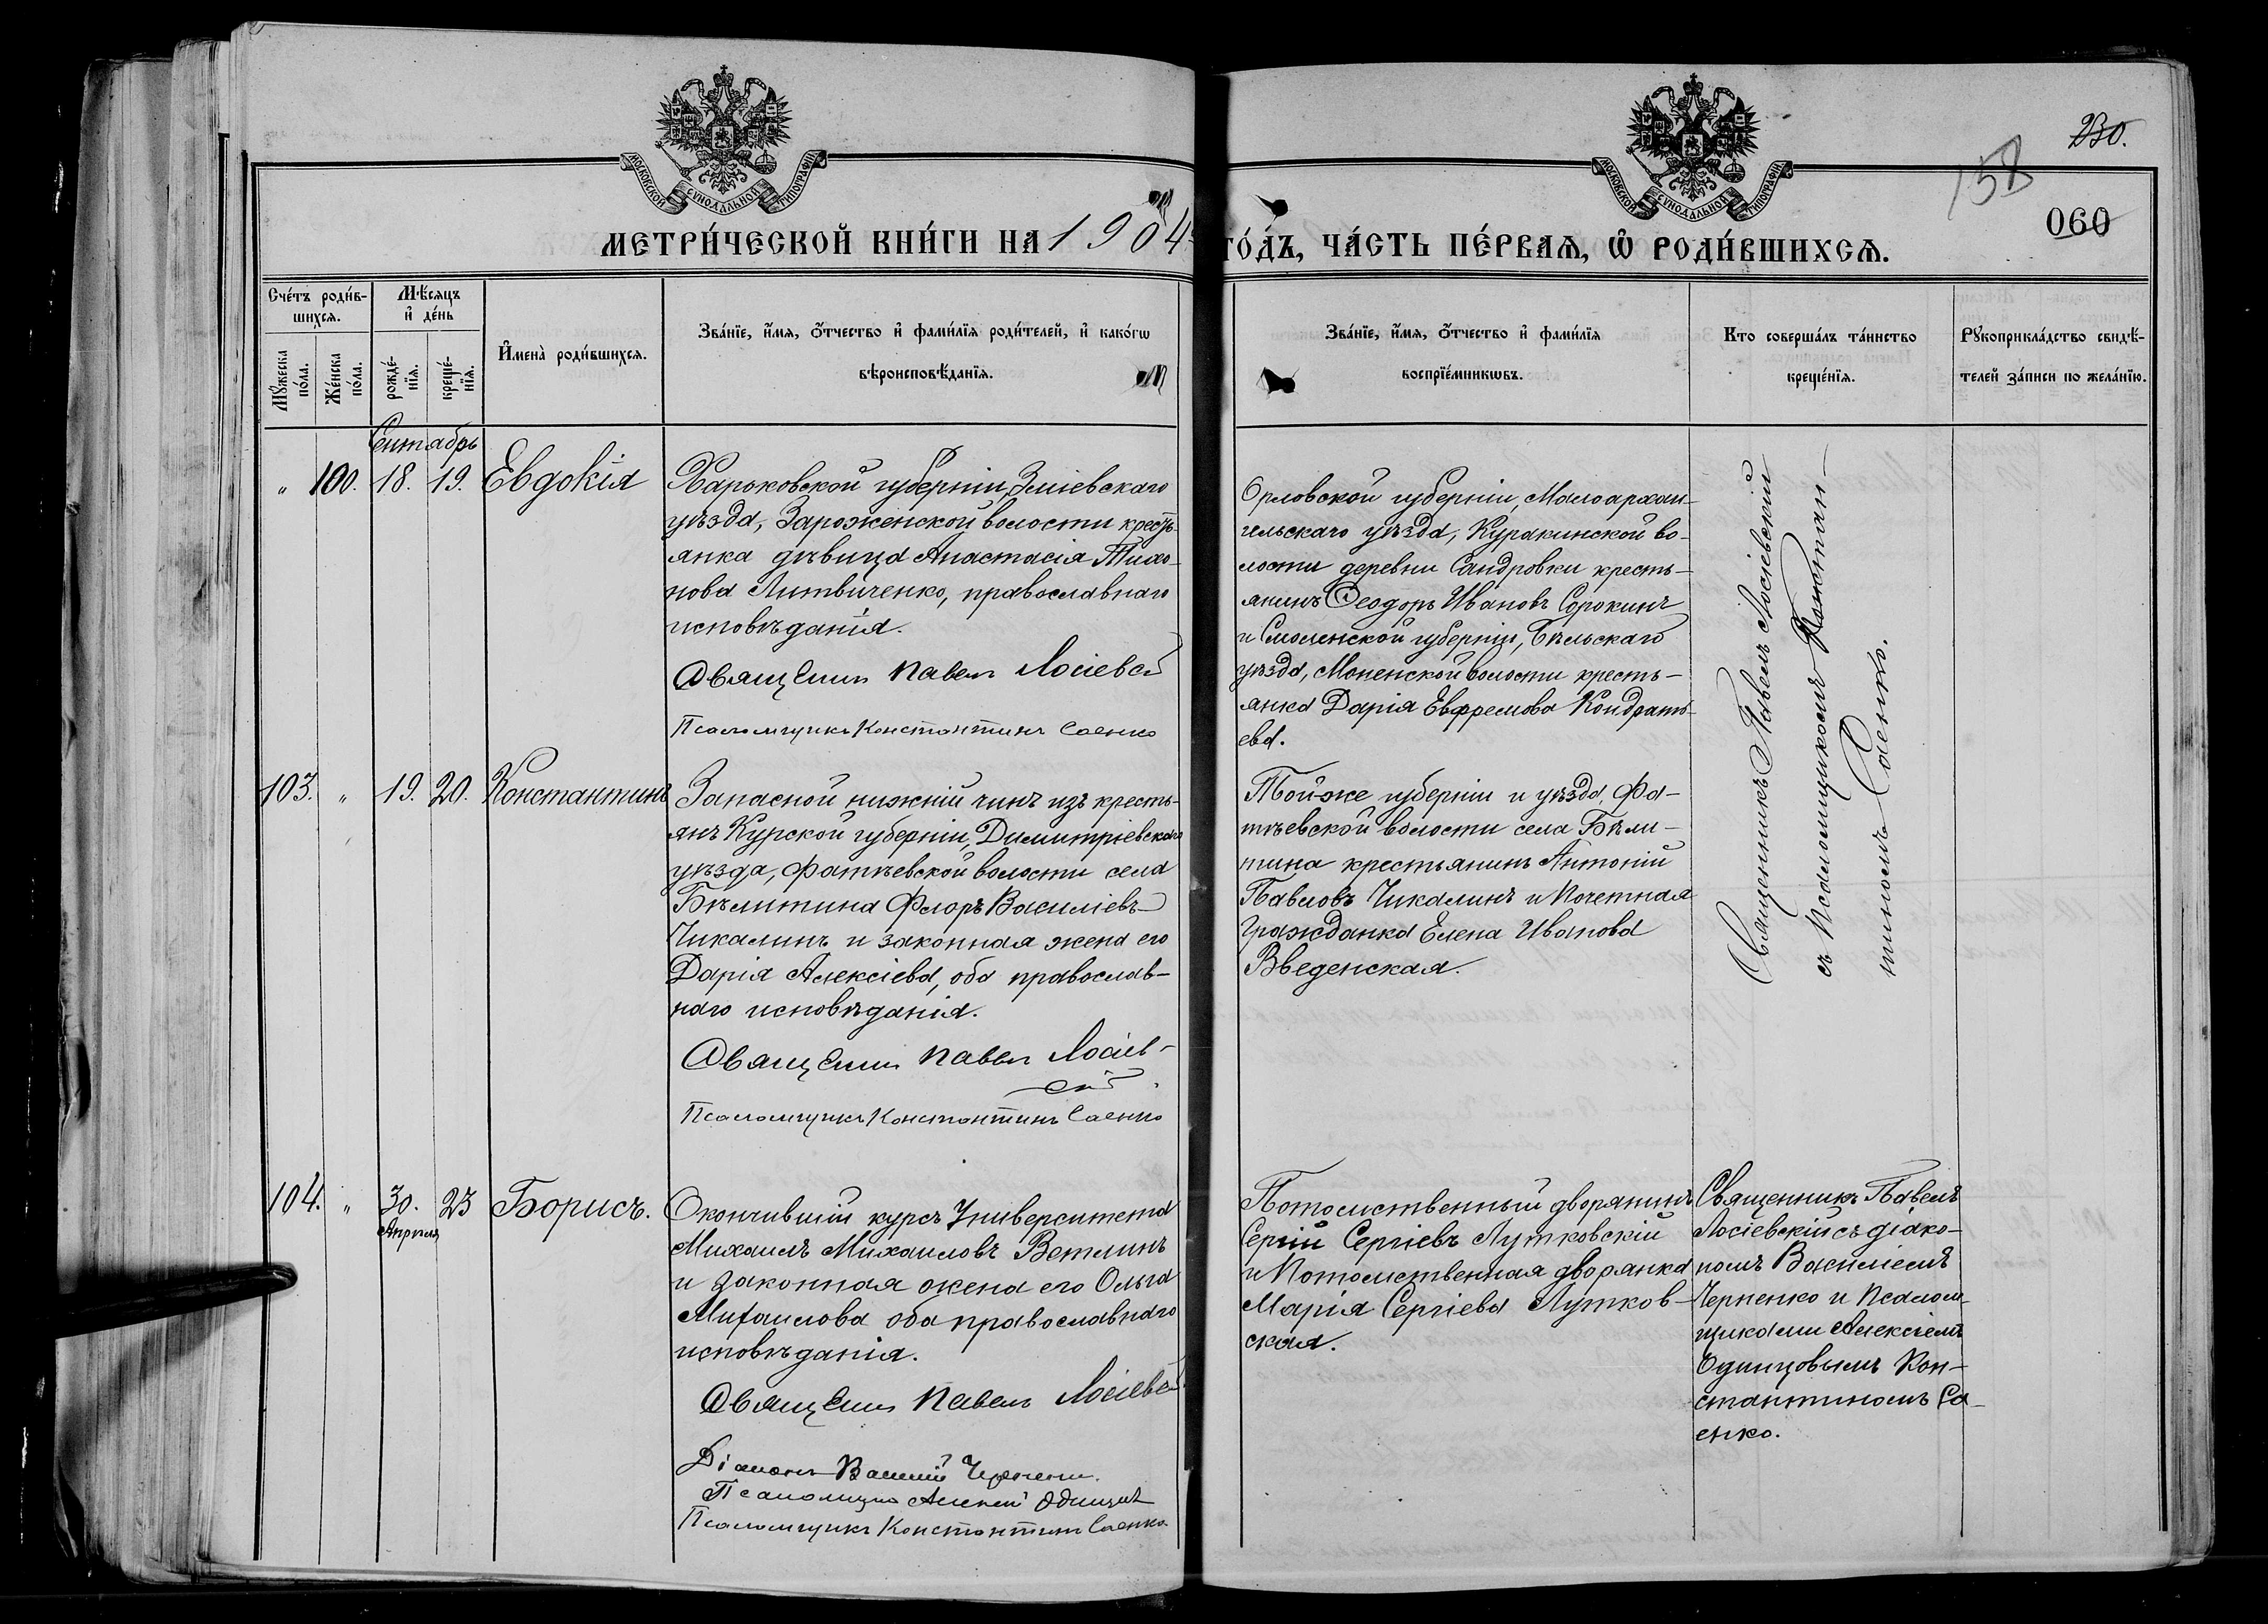 МОСКОВСКОЙ СѴНОДАЛЬНОЙ ТИПОГРАФІИ
МОСКОВСКОЙ СѴНОДАЛЬНОЙ ТИПОГРАФІИ
230.
158
060
МЕТРИ́ЧЕСКОЙ КНИ́ГИ НА 1904
ГО́ДЪ, ЧА́СТЬ ПЕ́РВАѦ, Ѡ҆ РОДИ́ВШИХСѦ.
Сче́тъ роди́в-
шихсѧ.
Мꙋ́жеска
по́ла.
Же́нска
по́ла.
Мѣ́сѧцъ
и҆ де́нь
рожде́-
нїѧ.
креще́-
нїѧ.
И҆мена̀ роди́вшихсѧ.
Зва́нїе, и҆́мѧ, ѻ҆́тчество и҆ фами́лїѧ роди́телей, и҆ како́гѡ
вѣроисповѣ́данїѧ.
Зва́нїе, и҆́мѧ, ѻ҆́тчество и҆ фами́лїѧ
воспрїе́мникѡвъ.
Кто соверша́лъ та́инство
креще́нїѧ.
Рꙋкоприкла́дство свидѣ́-
телей за́писи по жела́нїю.
Сентябрь
" 100. 18. 19. Евдокія
Харьковской губерніи, Зміевскаго
уѣзда, Зароженской волости кресть-
янка дѣвица Анастасія Тихо-
нова Литвиченко, православнаго
исповѣданія.
Священникъ Павелъ Лосіевскій
Псаломщикъ Константинъ Саенко
Орловской губерніи, Малоархан-
гельскаго уѣзда, Куракинской во-
лости деревни Сандровки кресть-
янинъ Ѳеодоръ Ивановъ Сорокинъ
и Смоленской губерніи, Бѣльскаго
уѣзда, Моненской волости кресть-
янка Дарія Евфремова Кондрать-
ева.
Священникъ Павелъ Лосіевскій
съ Псаломщикомъ Констан-
тиномъ Саенко.
103. " 19. 20. Константинъ
Запасной нижній чинъ изъ кресть-
янъ Курской губерніи, Димитріевскаго
уѣзда, Фатѣевской волости села
Бѣлитина Флоръ Василіевъ
Чикалинъ и законная жена его
Дарія Алексіева, оба православ-
наго исповѣданія.
Священникъ Павелъ Лосіев-
скій.
Псаломщикъ Константинъ Саенко
Той-же губерніи и уѣзда, Фа-
тѣевской волости села Бѣли-
тина крестьянинъ Антоній
Павловъ Чикалинъ и Почетная
Гражданка Елена Иванова
Введенская.
104. " 30. 23 Борисъ.
Апрѣля
Окончившій курсъ Университета
Михаилъ Михаиловъ Ветлинъ
и законная жена его Ольга
Михаилова оба православнаго
исповѣданія.
Священникъ Павелъ Лосіевскій
Діаконъ Василій Черненко.
Псаломщикъ Алексій Одинцовъ
Псаломщикъ Константинъ Саенко
Потомственный дворянинъ
Сергій Сергіевъ Лутковскій
и Потомственная дворянка
Марія Сергіева Лутков-
ская.
Священникъ Павелъ
Лосіевскій съ діако-
номъ Василіемъ
Черненко и Псалом-
щиками Алексіемъ
Одинцовымъ Кон-
стантиномъ Са-
енко.